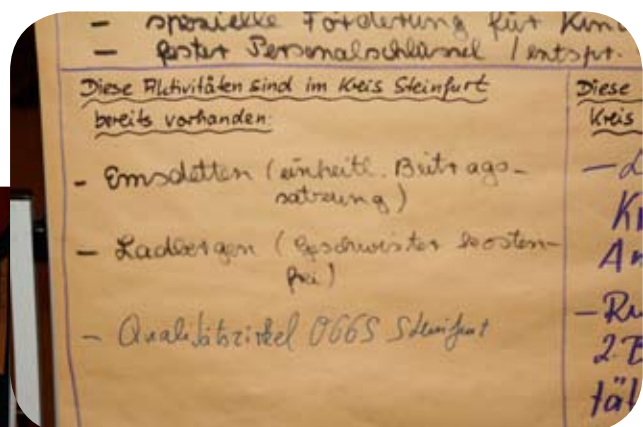 - spezielle Förderung für Kin
- fester Personalschlüssel / entspr.
Diese Aktivitäten sind im Kreis Steinfurt
bereits vorhanden:
- Emsdetten (einheitl. Beitrags-
satzung)
- Ladbergen (Geschwister kosten-
frei)
- Qualitätszirkel OGGS Steinfurt
Diese
Kreis
-
K
A
- Ru
2. B
tät